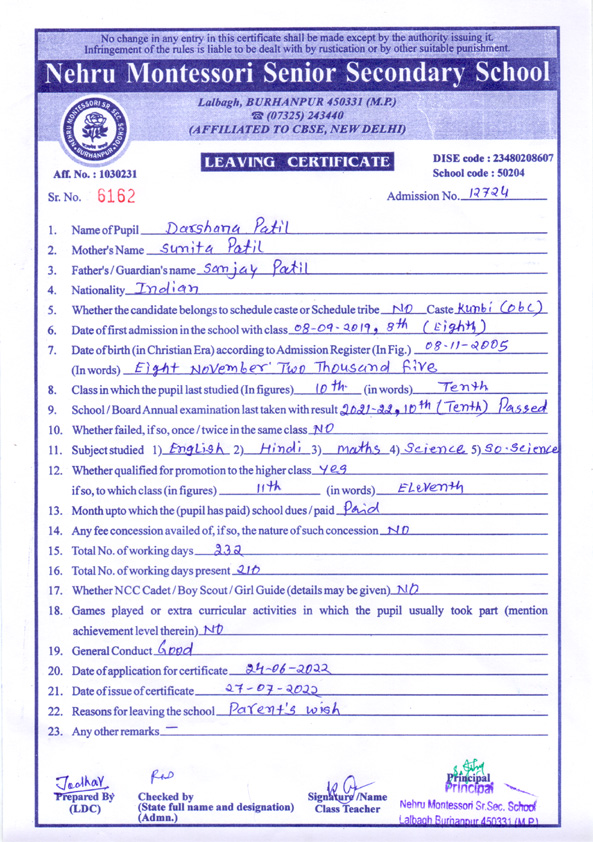 No change in any entry in this certificate shall be made except by the authority issuing it.
Infringement of the rules is liable to be dealt with by rustication or by other suitable punishment.
Nehru Montessori Senior Secondary School
Lalbagh, BURHANPUR 450331 (M.P.)
☎ (07325) 243440
(AFFILIATED TO CBSE, NEW DELHI)
NEHRU MONTESSORI SR. SEC. SCHOOL
BURHANPUR
LEAVING CERTIFICATE
DISE code : 23480208607
School code : 50204
Aff. No. : 1030231
Sr. No. 6162
Admission No. 12724
1. Name of Pupil Darshana Patil
2. Mother's Name Sunita Patil
3. Father's / Guardian's name Sanjay Patil
4. Nationality Indian
5. Whether the candidate belongs to schedule caste or Schedule tribe NO Caste Kunbi (obc)
6. Date of first admission in the school with class 08-09-2019, 8th (Eighth)
7. Date of birth (in Christian Era) according to Admission Register (In Fig.) 08-11-2005
(In words) Eight November Two Thousand five
8. Class in which the pupil last studied (In figures) 10th (in words) Tenth
9. School / Board Annual examination last taken with result 2021-22, 10th (Tenth) Passed
10. Whether failed, if so, once / twice in the same class NO
11. Subject studied 1) English 2) Hindi 3) maths 4) Science 5) So-Science
12. Whether qualified for promotion to the higher class yes
if so, to which class (in figures) 11th (in words) Eleventh
13. Month upto which the (pupil has paid) school dues / paid Paid
14. Any fee concession availed of, if so, the nature of such concession NO
15. Total No. of working days 232
16. Total No. of working days present 210
17. Whether NCC Cadet / Boy Scout / Girl Guide (details may be given) NO
18. Games played or extra curricular activities in which the pupil usually took part (mention
achievement level therein) NO
19. General Conduct Good
20. Date of application for certificate 24-06-2022
21. Date of issue of certificate 27-07-2022
22. Reasons for leaving the school Parent's wish
23. Any other remarks —
Prepared By
(LDC)
Checked by
(State full name and designation)
(Admn.)
Signature /Name
Class Teacher
Principal
Principal
Nehru Montessori Sr.Sec. School
Lalbagh Burhanpur 450331 (M.P.)